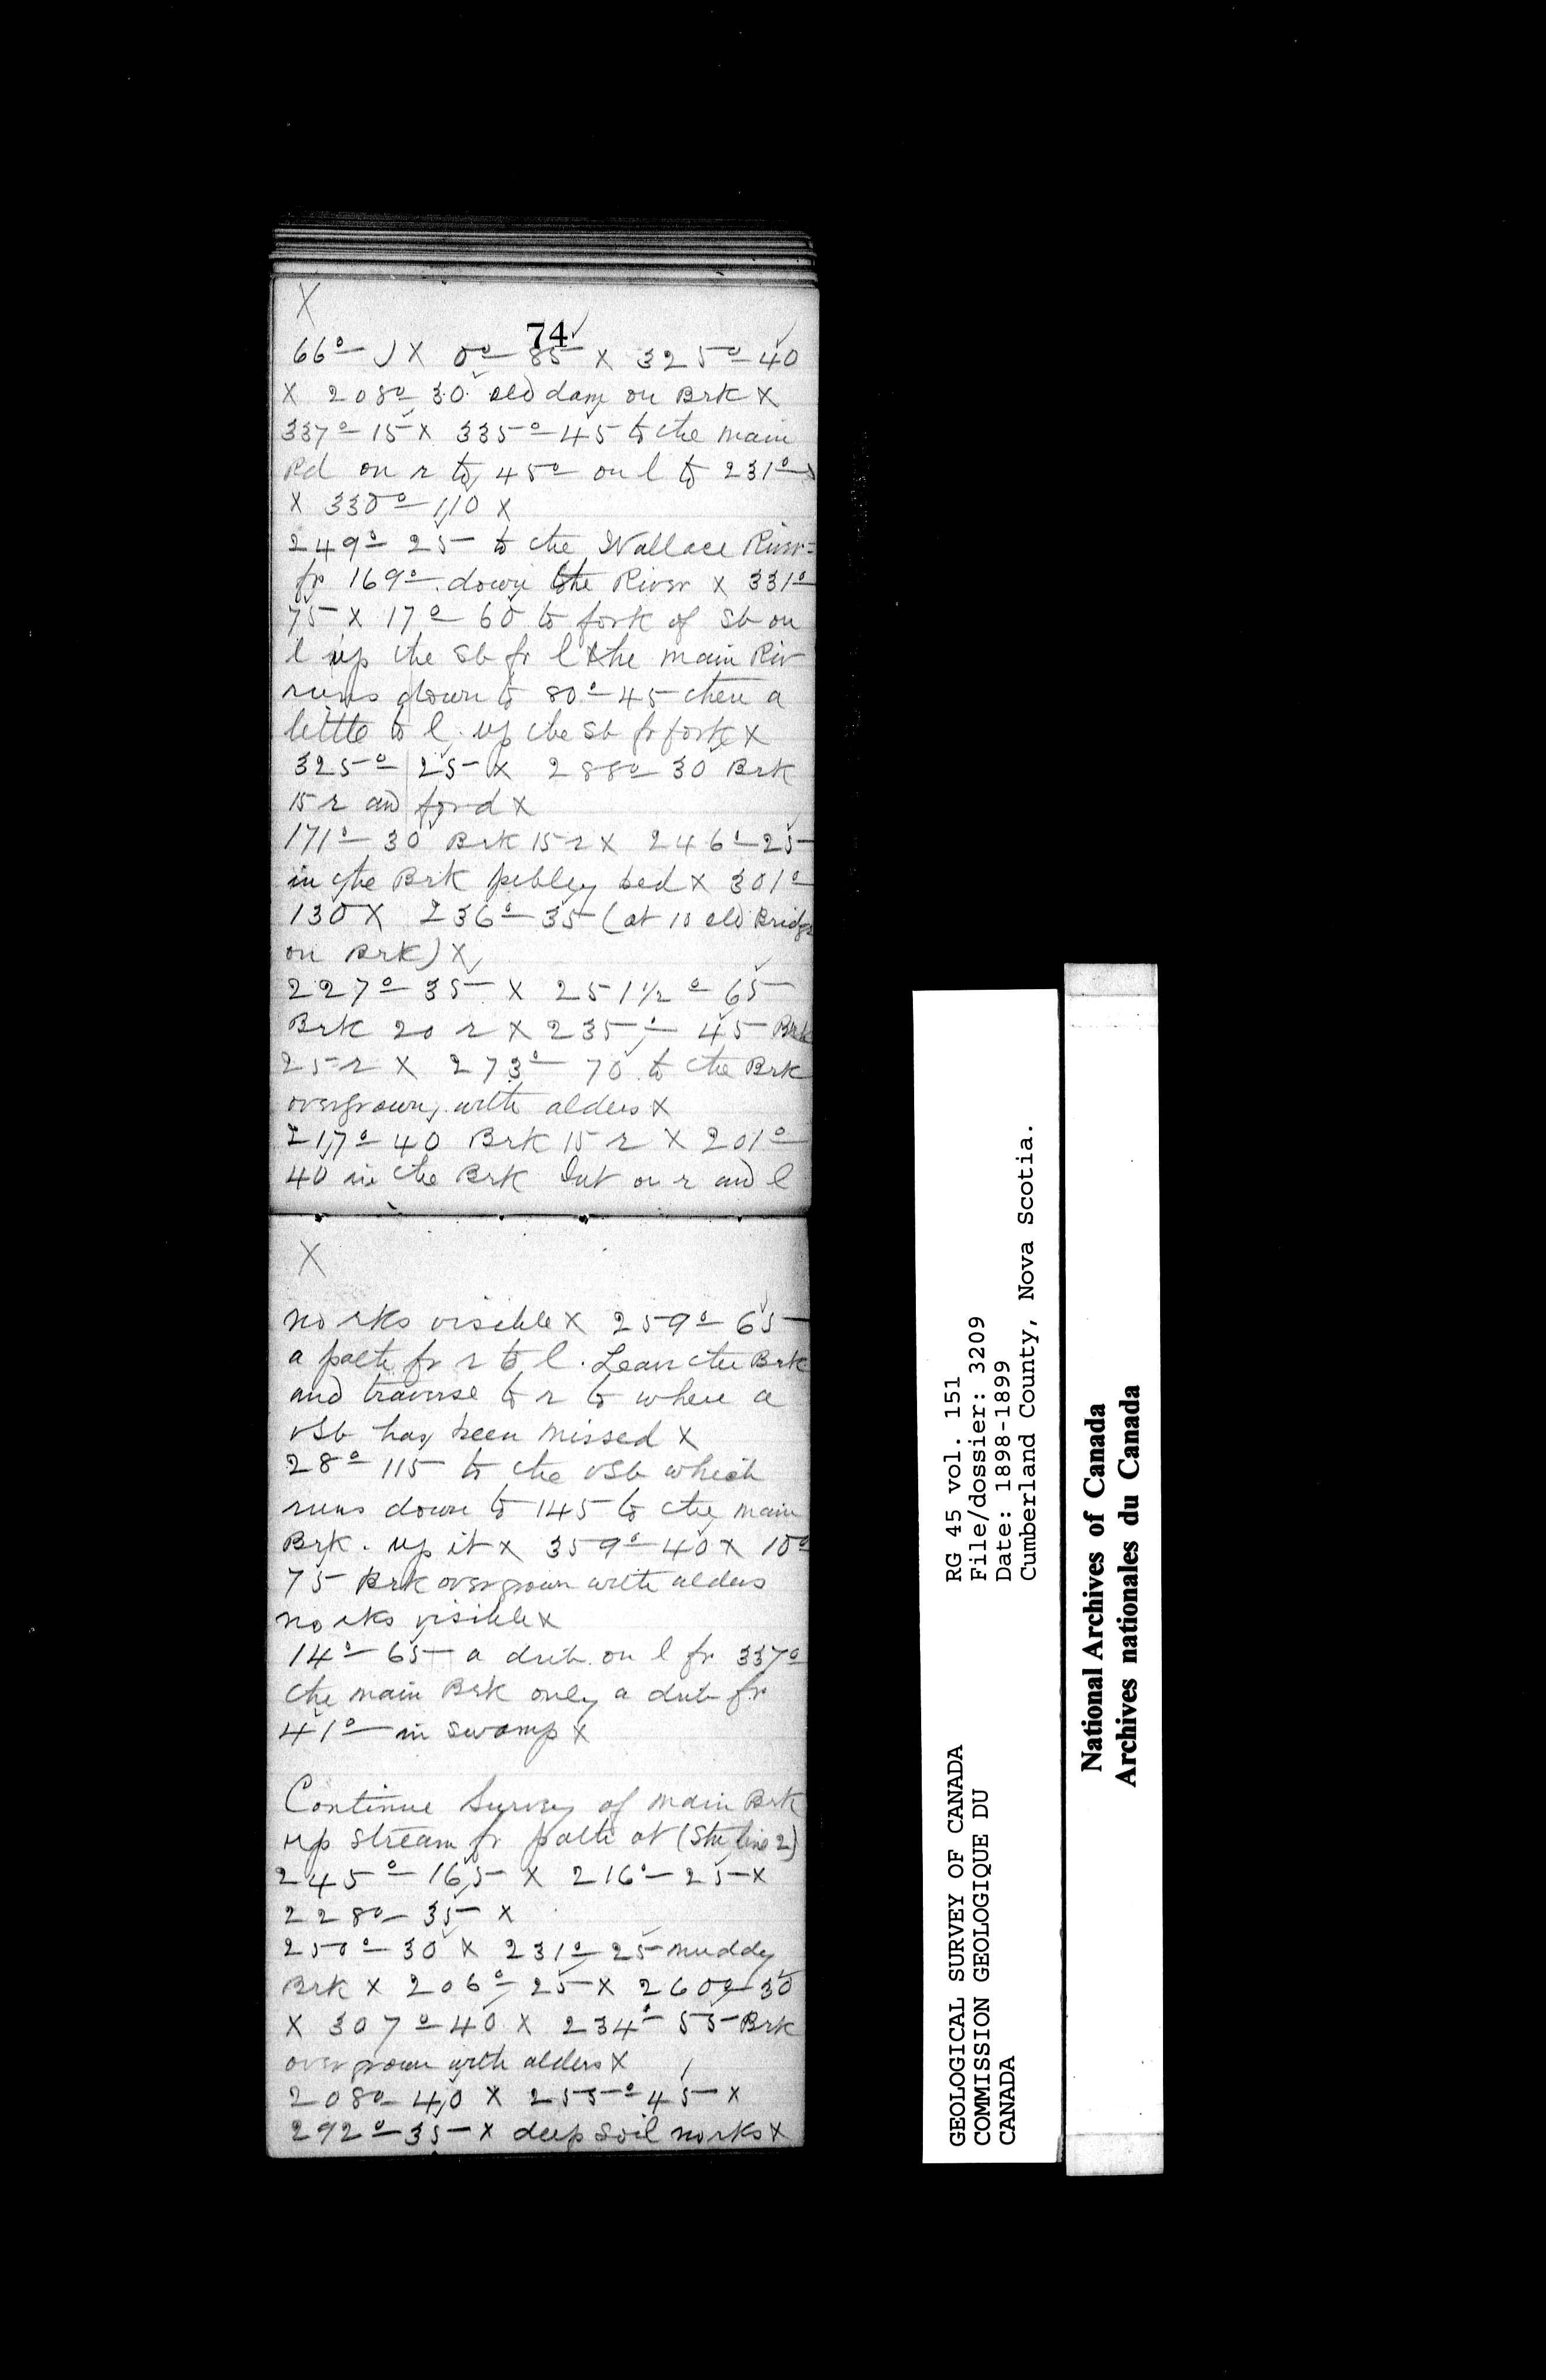 X
74
66° ) X 0° 85 X 325° 40
X 208° 30 old dam on Brk X
337° 15 X 335° 45 to the main
Rd on r to 45° on l to 231°
X 330° 110 X
249° 25 to the Wallace River
fr 169° down the River X 331°
75 X 17° 60 to fork of Sb on
l up the Sb fr l the main Riv
runs down to 80° 45 then a
little to l. up the Sb fr fork X
325° 25 X 288° 30 Brk
15 r and ford X
171° 30 Brk 15 r X 246° 25
in the Brk pebbley bed X 301°
130 X 236° 35 (at 10 old Bridge
on Brk) X
227° 35 X 251 1/2° 65
Brk 20 r X 235° 45 Brk
25 r X 273° 70 to the Brk
overgrown with alders X
217° 40 Brk 15 r X 201°
40 in the Brk Int on r and l
X
no rks visible X 259° 65
a path fr r to l. Leave the Brk
and traverse to r to where a
vSb has been missed X
28° 115 to the vSb which
runs down to 145 to the main
Brk. up it X 359° 40 X 10°
75 Brk overgrown with alders
no rks visible X
14° 65 a drib on l fr 337°
the main Brk only a drib fr
41° in swamp X
Continue Survey of main Brk
up stream fr path at (line 2)
245° 165 X 216° 25 X
228° 35 X
250° 30 X 231° 25 muddy
Brk X 206° 25 X 260° 30
X 307° 40 X 234° 55 Brk
overgrown with alders X
208° 40 X 255° 45 X
292° 35 X deep soil no rks X
GEOLOGICAL SURVEY OF CANADA
COMMISSION GEOLOGIQUE DU
CANADA
RG 45 vol. 151
File/dossier: 3209
Date: 1898-1899
Cumberland County, Nova Scotia.
National Archives of Canada
Archives nationales du Canada